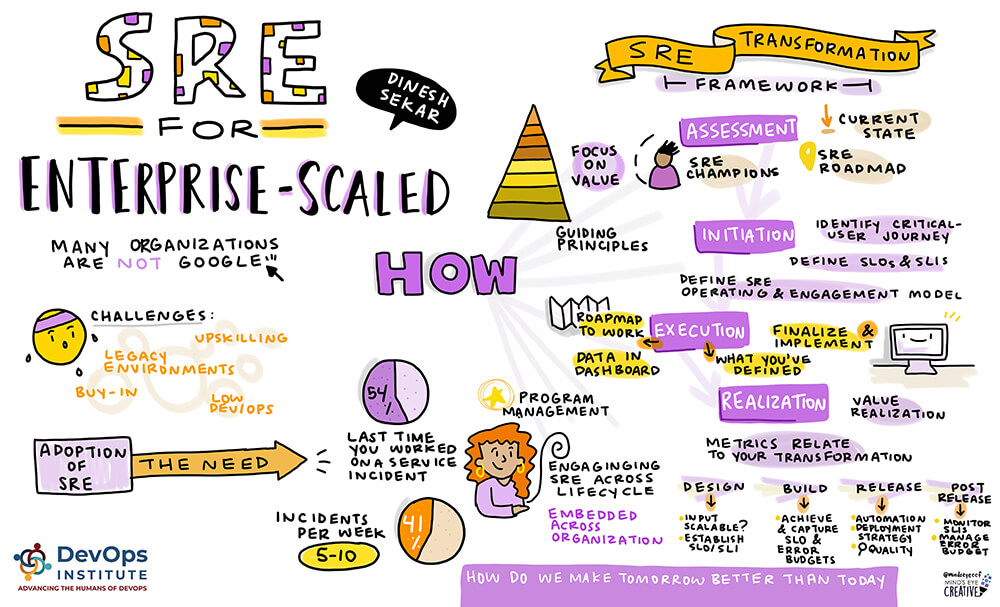 SRE
FOR
ENTERPRISE-SCALED
DINESH
SEKAR
MANY ORGANIZATIONS
ARE NOT GOOGLE!!!
CHALLENGES:
UPSKILLING
LEGACY
ENVIRONMENTS
BUY-IN
LOW
DEV/OPS
ADOPTION
OF
SRE
THE NEED
54
%
LAST TIME
YOU WORKED
ON A SERVICE
INCIDENT
INCIDENTS
PER WEEK
5-10
41
%
HOW
SRE TRANSFORMATION
FRAMEWORK
FOCUS
ON
VALUE
GUIDING
PRINCIPLES
ASSESSMENT
SRE
CHAMPIONS
CURRENT
STATE
SRE
ROADMAP
INITIATION
IDENTIFY CRITICAL-
USER JOURNEY
DEFINE SLOs & SLIs
DEFINE SRE
OPERATING & ENGAGEMENT MODEL
EXECUTION
ROADMAP
TO WORK
DATA IN
DASHBOARD
FINALIZE &
IMPLEMENT
WHAT YOU'VE
DEFINED
REALIZATION
VALUE
REALIZATION
METRICS RELATE
TO YOUR TRANSFORMATION
PROGRAM
MANAGEMENT
ENGAGINGING
SRE ACROSS
LIFECYCLE
EMBEDDED
ACROSS
ORGANIZATION
DESIGN
INPUT
SCALABLE?
ESTABLISH
SLO/SLI
BUILD
ACHIEVE
& CAPTURE
SLO &
ERROR
BUDGETS
RELEASE
AUTOMATION
DEPLOYMENT
STRATEGY
QUALITY
POST
RELEASE
MONITOR
SLIS
MANAGE
ERROR
BUDGET
HOW DO WE MAKE TOMORROW BETTER THAN TODAY
DevOps
INSTITUTE
ADVANCING THE HUMANS OF DEVOPS
MIND'S EYE
CREATIVE